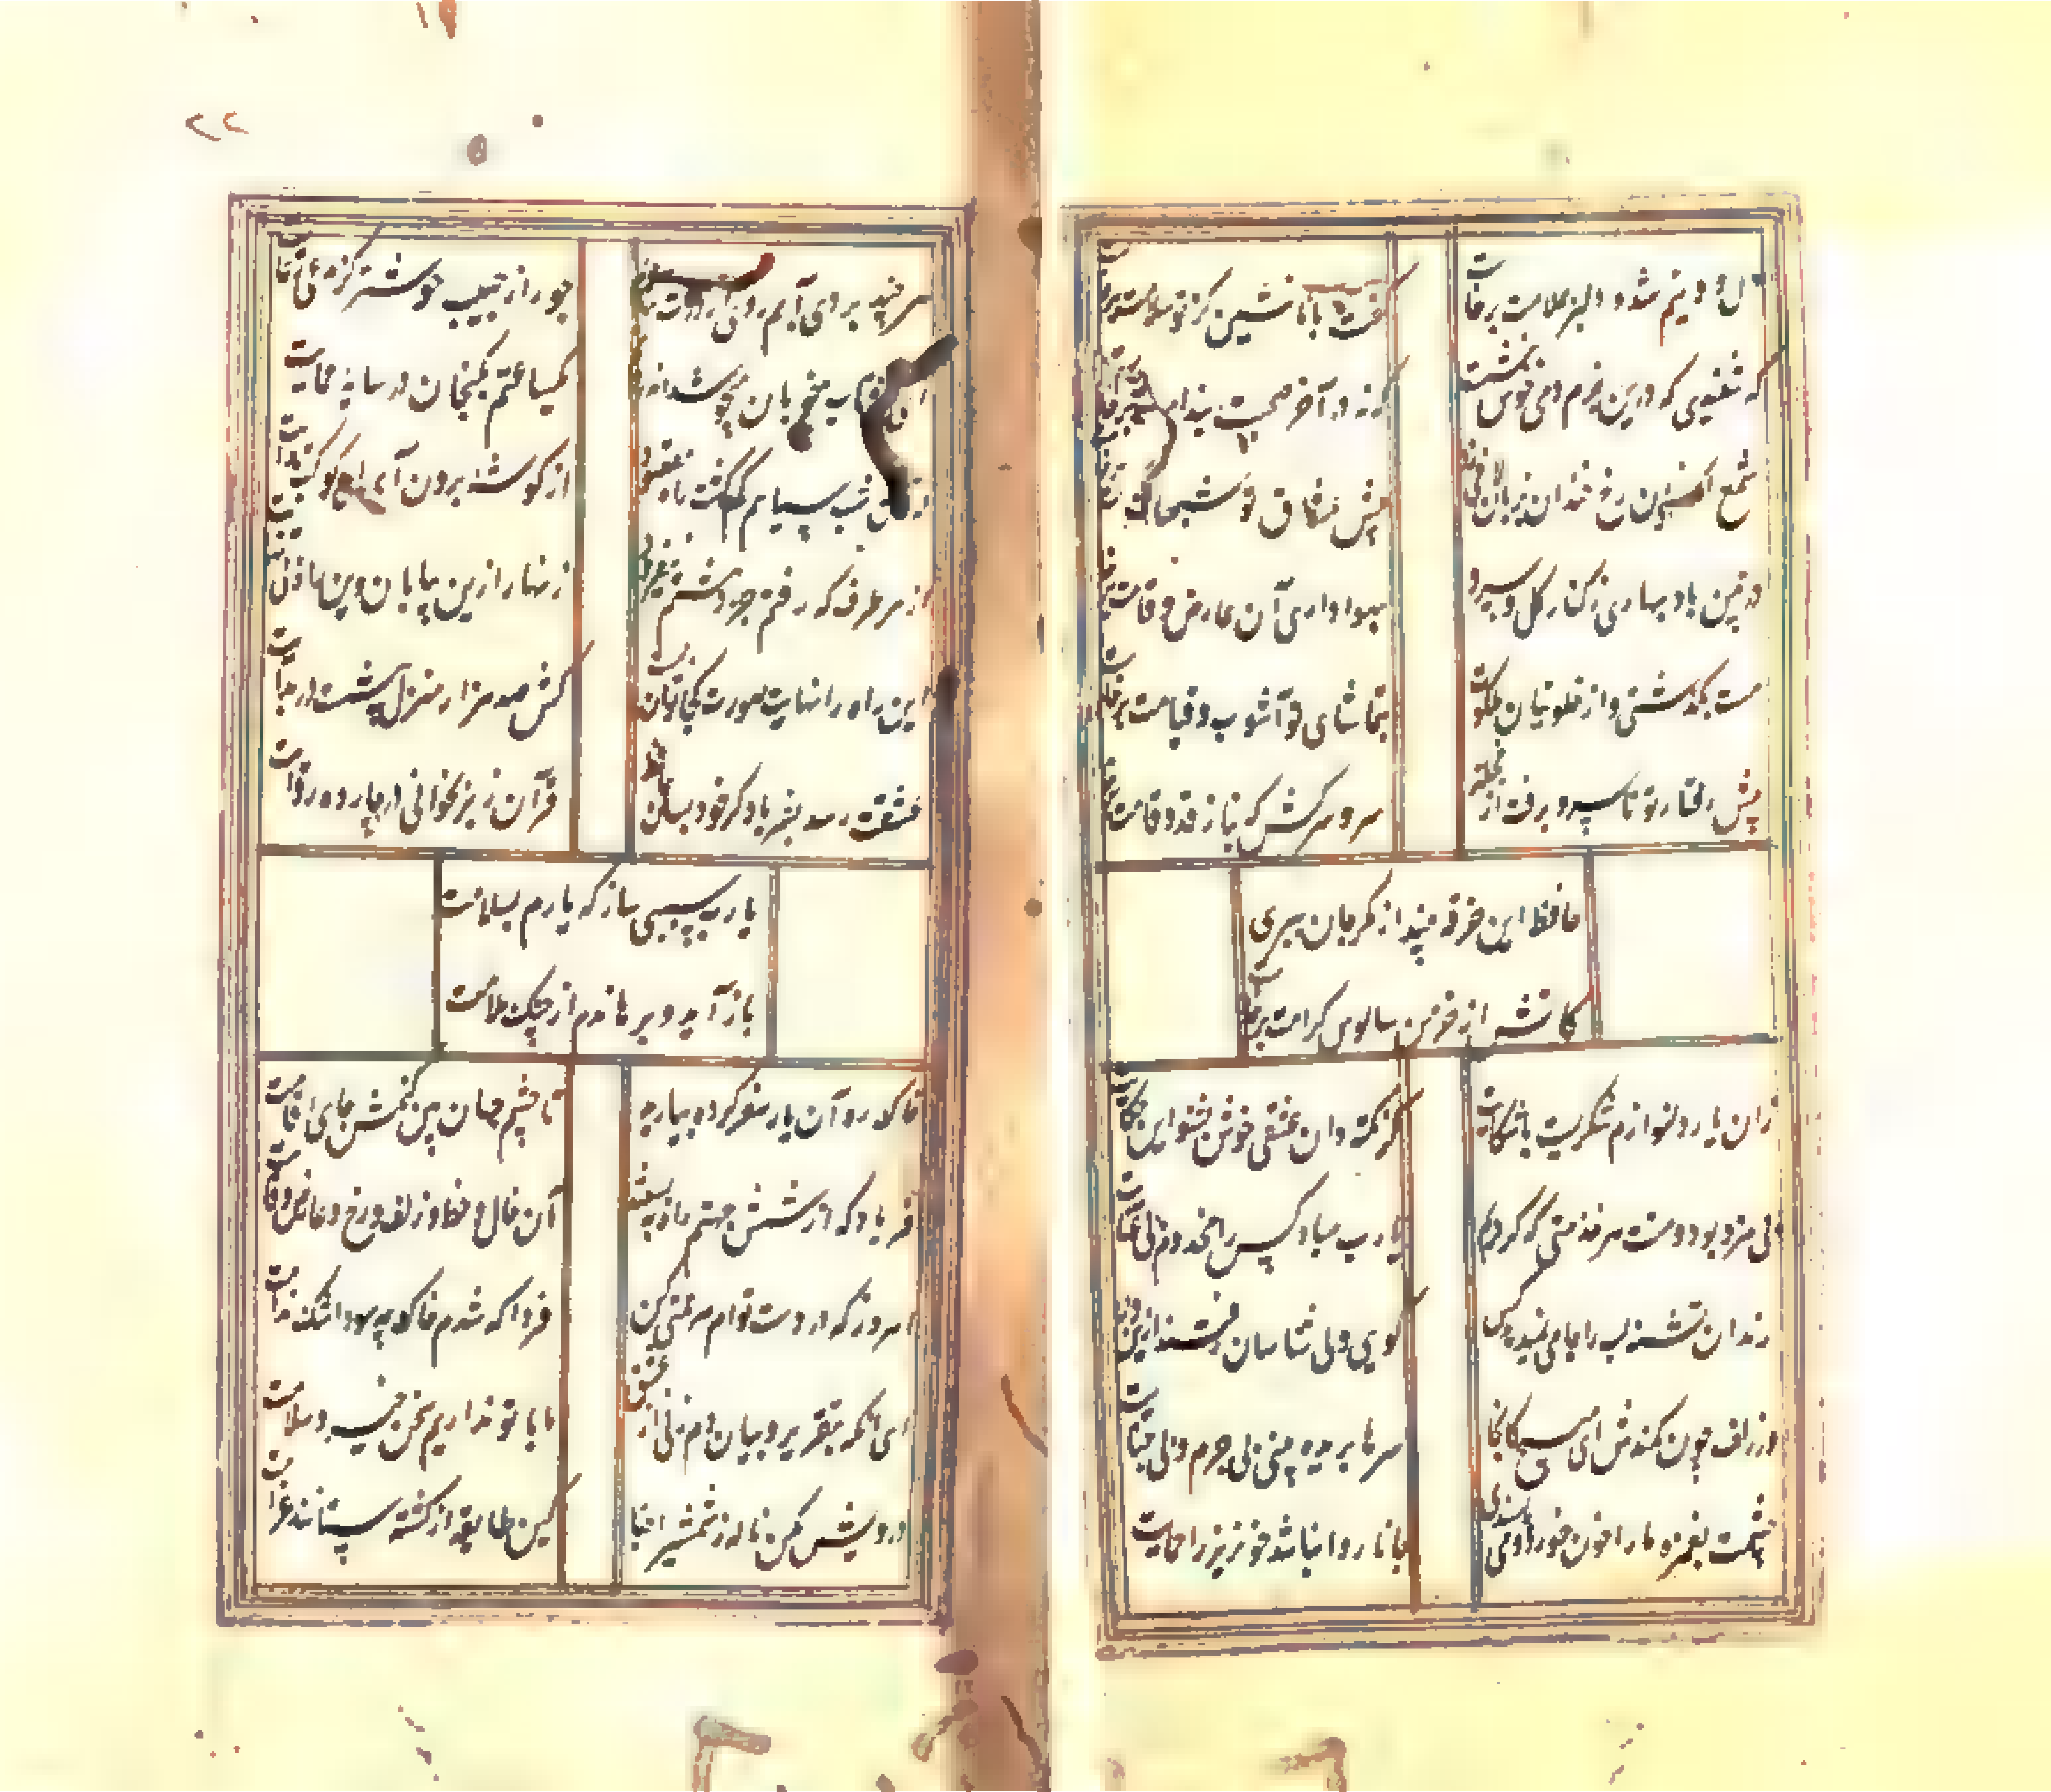 دل و دینم شد و دلبر بملامت برخاست گفت با ما منشین کز تو سلامت برخاست
که شنیدی که درین بزم دمی خوش بنشست که نه در آخر صحبت بندامت برخاست
شمع اگر زان رخ خندان بزبان لافی زد پیش عشاق تو شبها بغرامت برخاست
در چمن باد بهاری ز کنار گل و سرو بهواداری آن عارض و قامت برخاست
مست بگذشتی و از خلوتیان ملکوت بتماشای تو آشوب و قیامت برخاست
پیش رفتار تو تا سرو برفت از خجلت سرو سرکش که بناز قد و قامت برخاست
حافظ این خرقه بینداز مگر جان ببری
کاتش از خرمن سالوس کرامت برخاست
زان یار دلنوازم شکریست با شکایت گر نکته دان عشقی خوش بشنو این حکایت
بی مزد بود و منت هر خدمتی که کردم یا رب مباد کس را مخدوم بی عنایت
رندان تشنه لب را جامی نمیدهد کس گویی ولی شناسان رفتند ازین ولایت
در زلف چون کمندش ای دل مپیچ کانجا سرها بریده بینی بی جرم و بی جنایت
چشمت بغمزه ما را خون خورد و می پسندی جانا روا نباشد خونریز را حمایت
هر چند بردی آبم روی از درت نتابم جور از حبیب خوشتر کز مدعی رعایت
ای آفتاب خوبان میجوشد اندرونم یکساعتم بگنجان در سایه عنایت
در این شب سیاهم گم گشت راه مقصود از گوشه برون آی ای کوکب هدایت
از هر طرف که رفتم جز وحشتم نیفزود زنهار ازین بیابان وین راه بی نهایت
این راه را نهایت صورت کجا توان بست کش صد هزار منزل بیشست در بدایت
عشقت رسد بفریاد گر خود بسان حافظ قرآن ز بر بخوانی در چارده روایت
یا رب سببی ساز که یارم بسلامت
باز آید و برهاندم از چنگ ملامت
خاک ره آن یار سفر کرده بیارید تا چشم جهان بین کنمش جای اقامت
فریاد که از شش جهتم راه ببستند آن خال و خط و زلف و رخ و عارض و قامت
امروز که در دست توام مرحمتی کن فردا که شدم خاک چه سود اشک ندامت
ای آنکه بتقریر و بیان دم زنی از عشق ما با تو نداریم سخن خیر و سلامت
درویش مکن ناله ز شمشیر احبا کین طایفه از کشته ستانند غرامت
۲۲